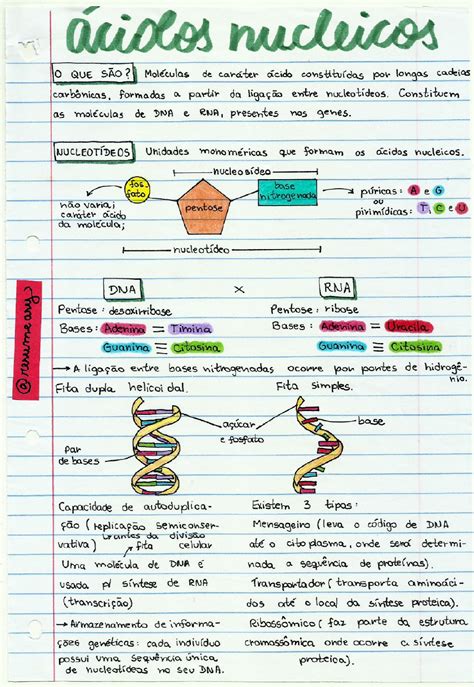 ácidos nucleicos
O QUE SÃO? Moléculas de caráter ácido constituídas por longas cadeias
carbônicas, formadas a partir da ligação entre nucleotídeos. Constituem
as moléculas de DNA e RNA, presentes nos genes.
NUCLEOTÍDEOS Unidades monoméricas que formam os ácidos nucleicos.
nucleosídeo
fos-
fato
pentose
base
nitrogenada
não varia;
caráter ácido
da molécula;
púricas: A e G
ou
pirimídicas: T, C e U
nucleotídeo
DNA x RNA
Pentose: desoxirribose
Pentose: ribose
Bases: Adenina = Timina
Guanina ≡ Citosina
Bases: Adenina = Uracila
Guanina ≡ Citosina
@resumeary
→ A ligação entre bases nitrogenadas ocorre por pontes de hidrogê-
nio.
Fita dupla helicoidal.
Fita simples.
açúcar
e fosfato
base
par
de bases
Capacidade de autoduplica-
ção (replicação semiconser-
vativa) durante a divisão
celular
fita
Uma molécula de DNA é
usada p/ síntese de RNA
(transcrição)
→ Armazenamento de informa-
ções genéticas: cada indivíduo
possui uma sequência única
de nucleotídeos no seu DNA.
Existem 3 tipos:
Mensageiro (leva o código de DNA
até o citoplasma, onde será determi-
nada a sequência de proteínas).
Transportador (transporta aminoáci-
dos até o local da síntese proteica).
Ribossômico (faz parte da estrutura
cromossômica onde ocorre a síntese
proteica).